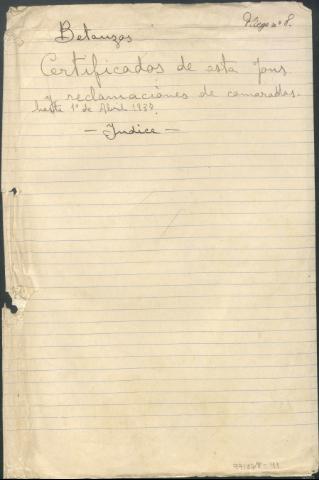 Pliego nº 8.
Betanzos
Certificados de esta Jons
y reclamaciones de camaradas.
hasta 1º de Abril 1939
— Indice —